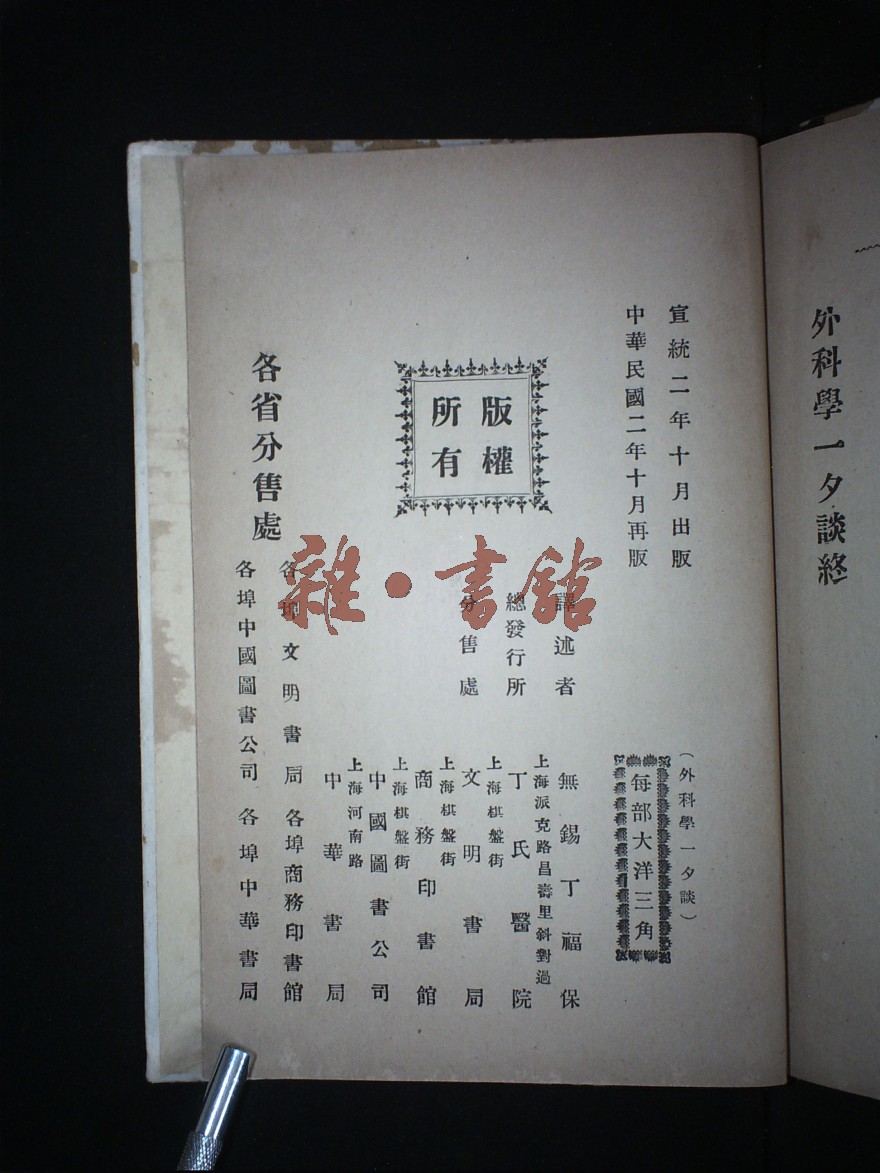 外科學一夕談終
宣統二年十月出版
中華民國二年十月再版
(外科學一夕談)
每部大洋三角
版權
所有
譯述者 無錫丁福保
總發行所 上海派克路昌壽里斜對過
丁氏醫院
分售處 上海棋盤街
文明書局
上海棋盤街
商務印書館
上海棋盤街
中國圖書公司
上海河南路
中華書局
各省分售處
各埠文明書局 各埠商務印書館
各埠中國圖書公司 各埠中華書局
雜·書館